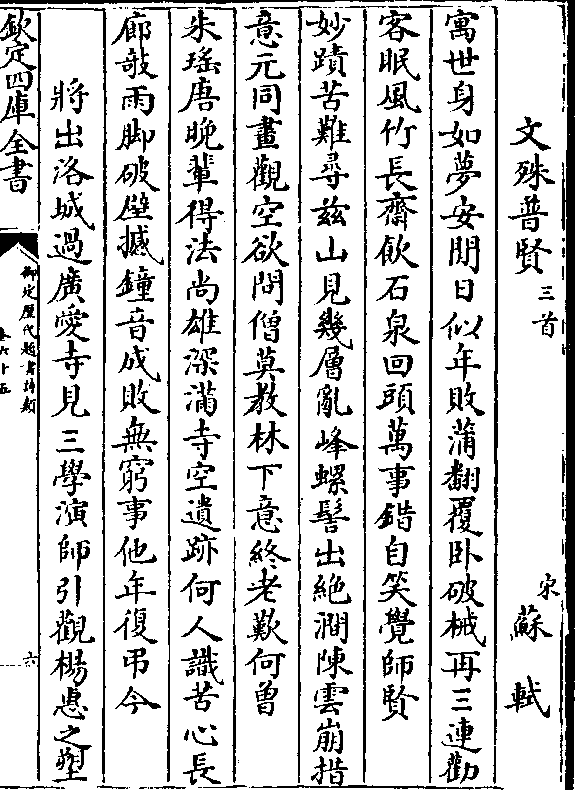 文殊普賢三首 宋 蘇軾
寓世身如夢安閒日似年敗蒲翻覆卧破械再三連勸
客眠風竹長齋飲石泉回頭萬事錯自笑覺師賢
妙蹟苦難尋茲山見幾層亂峰螺髻出絶澗陳雲崩措
意元同畫觀空欲問僧莫教林下意終老歎何曾
朱瑤唐晚輩得法尚雄深滿寺空遺跡何人識苦心長
廊欹雨脚破壁撼鐘音成敗無窮事他年復弔今
將出洛城過廣愛寺見三學演師引觀楊惠之塑
欽定四庫全書
御定歴代題畫詩類
卷六十五
六